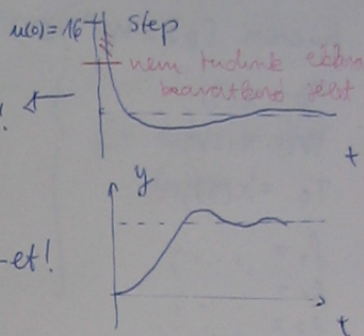 u(0)=16 step
nem tudunk ekkora
beavatkozó jelet
t
y
-et!
t